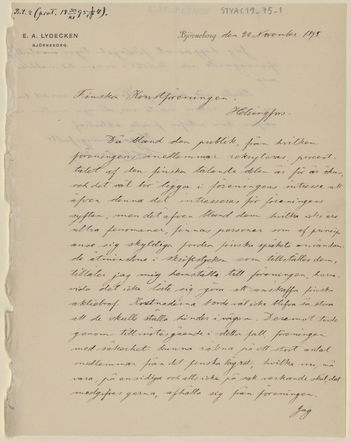 STYAC19-75-1
E. A. LYDECKEN
BJÖRNEBORG.
Björneborg den 28 November 1895
Finska Konstföreningen.
Helsingfors.
Då bland den publik, från hvilken
föreningens medlemmar rekryteras, procent-
talet af den finska talande delen år för år ökas,
och det väl bör ligga i föreningens intresse att
äfven denna del intresseras för föreningens
syften, men det äfven bland dem, hvilka äro
ultra fennomaner, finnas personer som af princip
anse sig skyldiga fordra finska språkets användande
de åtminstone i skriftstycken som tillställas dem,
tillåter jag mig hemställa till föreningen huru-
vida det icke läte sig göra att anskaffa finska
aktiebref. Kostnaderna borde väl icke blifva så stora
att de skulle ställa hinder i vägen. Deremot torde
genom tillmötesgående i detta fall föreningen
med säkerhet kunna räkna på ett stort antal
medlemmar från det finska lägret, hvilka nu, må
vara, på ensidiga och alls icke på sak verkande skäl, det
medgifves gerna, afhålla sig från föreningen.
Jag